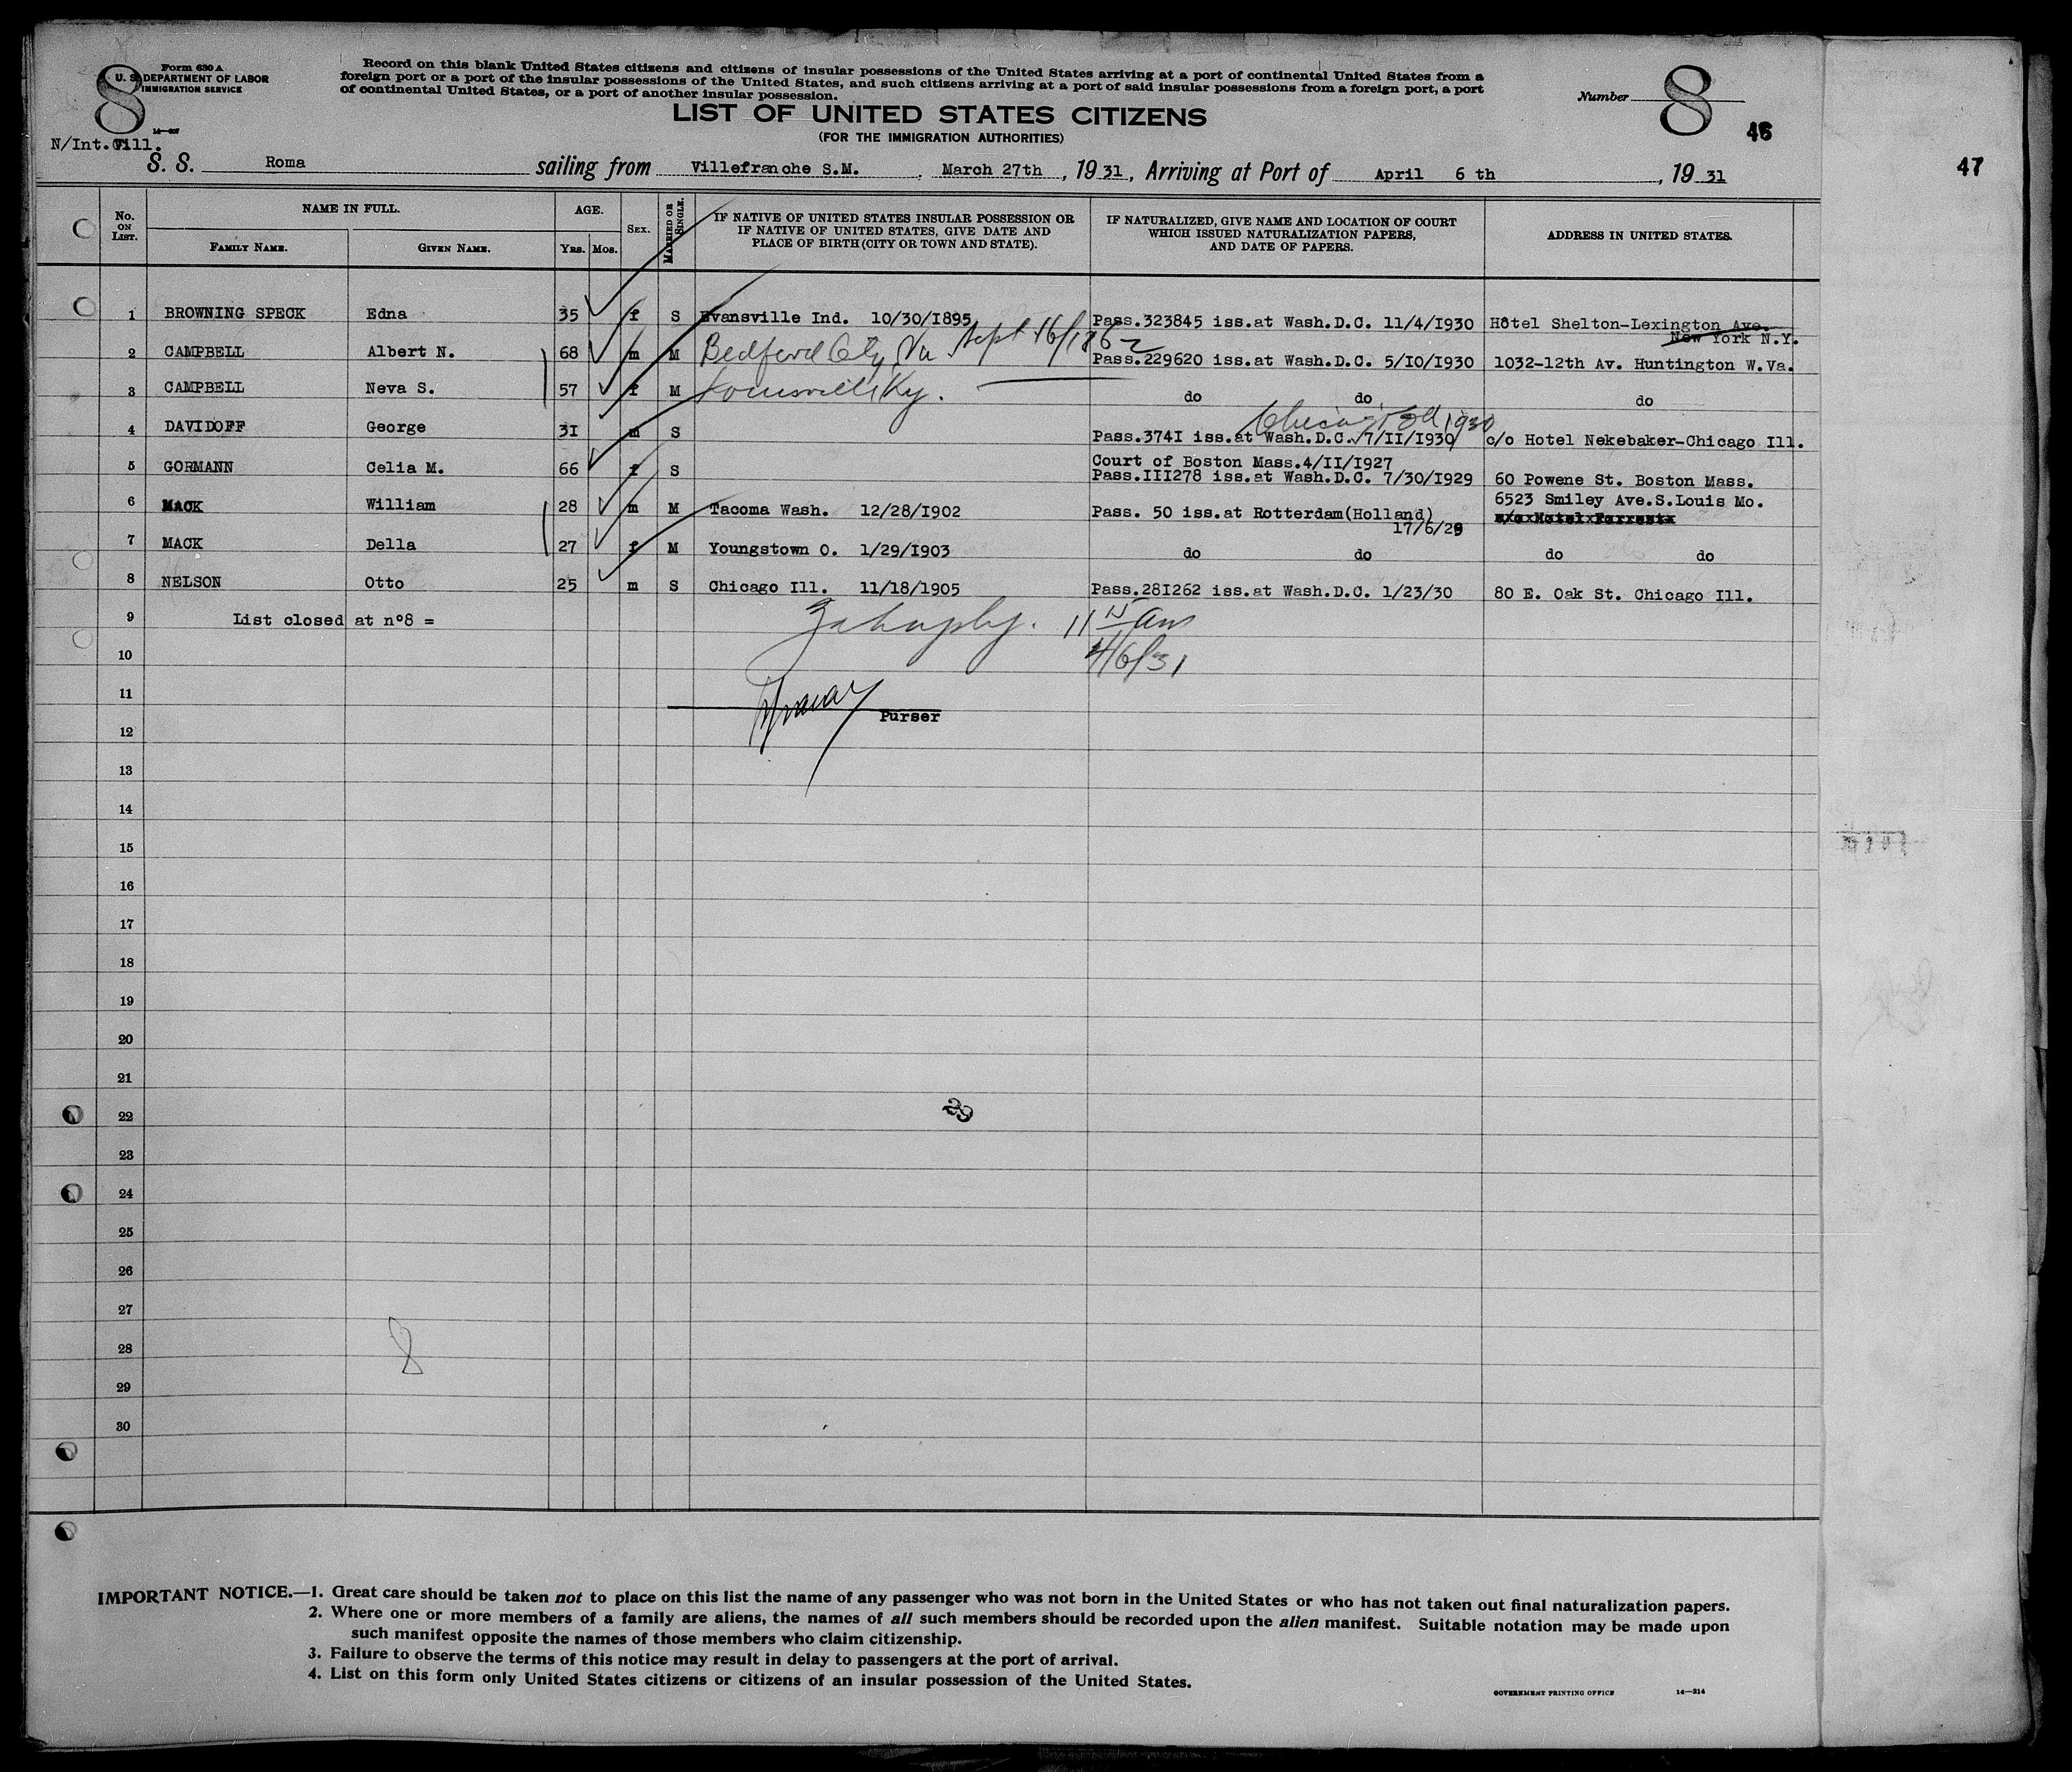 Form 630 A
U. S. DEPARTMENT OF LABOR
IMMIGRATION SERVICE
8
Record on this blank United States citizens and citizens of insular possessions of the United States arriving at a port of continental United States from a
foreign port or a port of the insular possessions of the United States, and such citizens arriving at a port of said insular possessions from a foreign port, a port
of continental United States, or a port of another insular possession.
LIST OF UNITED STATES CITIZENS
(FOR THE IMMIGRATION AUTHORITIES)
Number 8
47
N/Int.
S. S. Roma sailing from Villefranche S.M. , March 27th , 19 31, Arriving at Port of April 6 th , 19 31
No. ON LIST. NAME IN FULL. AGE. SEX. MARRIED OR SINGLE. IF NATIVE OF UNITED STATES INSULAR POSSESSION OR IF NATIVE OF UNITED STATES, GIVE DATE AND PLACE OF BIRTH (CITY OR TOWN AND STATE). IF NATURALIZED, GIVE NAME AND LOCATION OF COURT WHICH ISSUED NATURALIZATION PAPERS, AND DATE OF PAPERS. ADDRESS IN UNITED STATES.
FAMILY NAME. GIVEN NAME. YRS. MOS.
1 BROWNING SPECK Edna 35 f S Evansville Ind. 10/30/I895 Pass.323845 iss.at Wash.D.C. 11/4/I930 Hôtel Shelton-Lexington Ave.
New York N.Y.
2 CAMPBELL Albert N. 68 m M Bedford City Va Sept 16/1862 Pass.229620 iss.at Wash.D.C. 5/10/1930 1032-12th Av. Huntington W.Va.
3 CAMPBELL Neva S. 57 f M Louisville Ky. do do do
4 DAVIDOFF George 3I m S Pass.374I iss.at Wash.D.C. 7/II/1930 c/o Hotel Nekebaker-Chicago Ill.
5 GORMANN Celia M. 66 f S Court of Boston Mass.4/II/1927
Pass.III278 iss.at Wash.D.C. 7/30/1929 60 Powene St. Boston Mass.
6 MACK William 28 m M Tacoma Wash. 12/28/1902 Pass. 50 iss.at Rotterdam(Holland) 6523 Smiley Ave.S.Louis Mo.
17/6/29
7 MACK Della 27 f M Youngstown O. 1/29/1903 do do do do
8 NELSON Otto 25 m S Chicago Ill. 11/18/1905 Pass.28I262 iss.at Wash.D.C. 1/23/30 80 E. Oak St. Chicago Ill.
9 List closed at n°8 = 11 15 am
10 4/6/31
11
Purser
12
13
14
15
16
17
18
19
20
21
22 29
23
24
25
26
27
28 8
29
30
IMPORTANT NOTICE.—1. Great care should be taken not to place on this list the name of any passenger who was not born in the United States or who has not taken out final naturalization papers.
2. Where one or more members of a family are aliens, the names of all such members should be recorded upon the alien manifest. Suitable notation may be made upon
such manifest opposite the names of those members who claim citizenship.
3. Failure to observe the terms of this notice may result in delay to passengers at the port of arrival.
4. List on this form only United States citizens or citizens of an insular possession of the United States.
GOVERNMENT PRINTING OFFICE 14—214